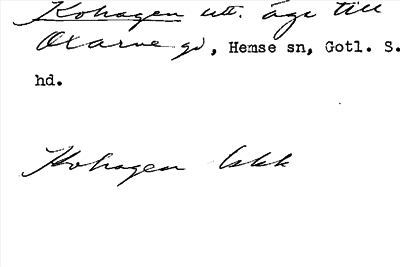 Kohagen utt. äga till
Oxarve gd, Hemse sn, Gotl. S.
hd.
Kohagen